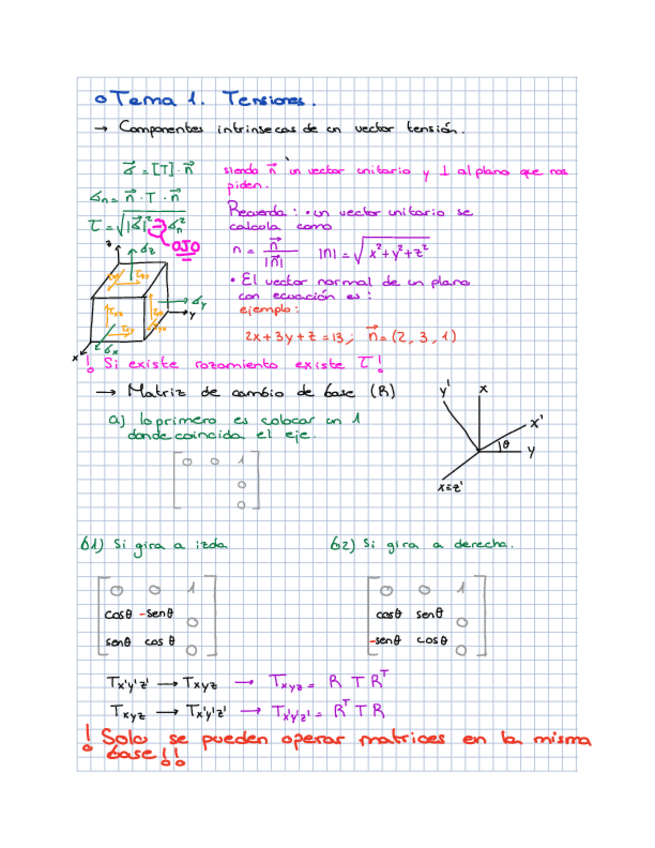 o Tema 1. Tensiones.
→ Componentes intrinsecas de un vector tensión.
σ⃗ = [T]·n⃗ siendo n⃗ un vector unitario y ⊥ al plano que nos
piden.
σn = n⃗ · T · n⃗
Recuerda: • un vector unitario se
τ = √|σ⃗|² - σn² calcula como
OJO
n = n⃗ / |n⃗| |n| = √x²+y²+z²
z σz
• El vector normal de un plano
con ecuación es:
σy
y
ejemplo:
2x + 3y + z = 13; n⃗ = (2, 3, 1)
x σx
! Si existe rozamiento existe τ!
→ Matriz de cambio de base (R)
y' x
a) lo primero es colocar un 1
donde coincida el eje.
x'
θ
y
x≡z'
0 0 1
0
0
b1) Si gira a izda b2) Si gira a derecha.
0 0 1
cosθ -senθ 0
senθ cos θ 0
0 0 1
cosθ senθ 0
-senθ cosθ 0
Tx'y'z' → Txyz → Txyz = R T Rᵀ
Txyz → Tx'y'z' → Tx'y'z' = Rᵀ T R
! Solo se pueden operar matrices en la misma
base!!